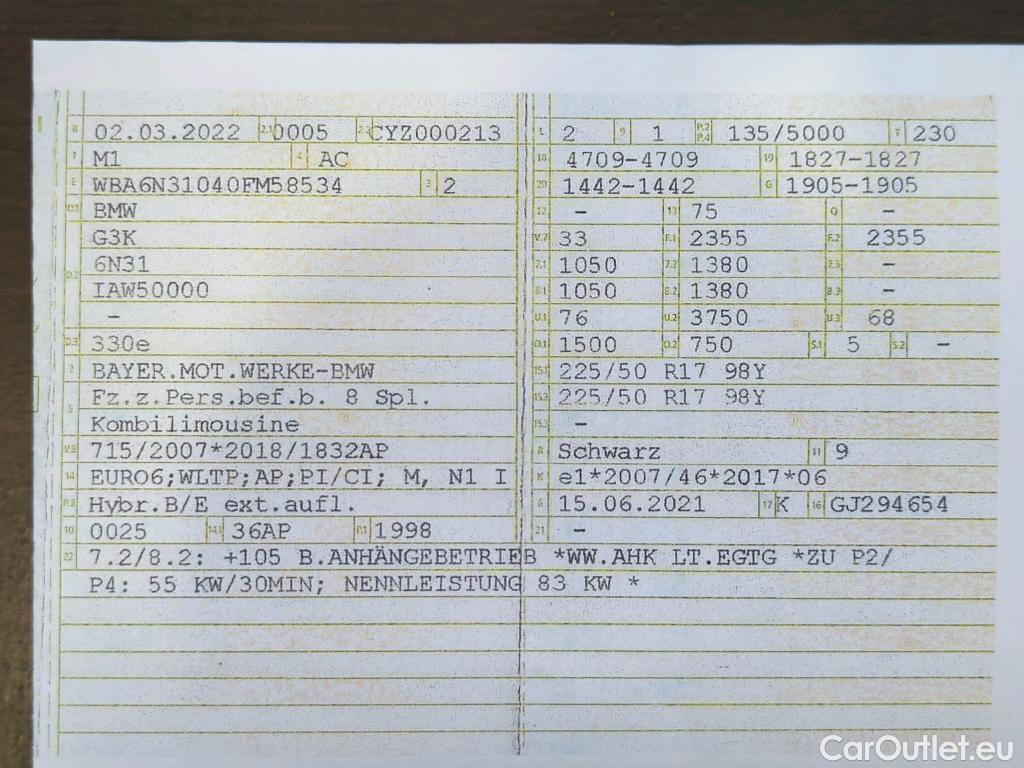 B 02.03.2022 2.1 0005 2.2 CYZ000213 L 2 9 1 P.2 P.4 135/5000 T 230
J M1 4 AC 18 4709-4709 19 1827-1827
E WBA6N31040FM58534 3 2 20 1442-1442 G 1905-1905
D.1 BMW 12 - 13 75 Q -
G3K V.7 33 F.1 2355 F.2 2355
D.2 6N31 7.1 1050 7.2 1380 7.3 -
IAW50000 8.1 1050 8.2 1380 8.3 -
- U.1 76 U.2 3750 U.3 68
D.3 330e O.1 1500 O.2 750 S.1 5 S.2 -
2 BAYER.MOT.WERKE-BMW 15.1 225/50 R17 98Y
5 Fz.z.Pers.bef.b. 8 Spl. 15.2 225/50 R17 98Y
Kombilimousine 15.3 -
V.9 715/2007*2018/1832AP R Schwarz 11 9
14 EURO6;WLTP;AP;PI/CI; M, N1 I K e1*2007/46*2017*06
P.3 Hybr.B/E ext.aufl. 6 15.06.2021 17 K 16 GJ294654
10 0025 14.1 36AP P.1 1998 21 -
22 7.2/8.2: +105 B.ANHÄNGEBETRIEB *WW.AHK LT.EGTG *ZU P2/
P4: 55 KW/30MIN; NENNLEISTUNG 83 KW *
CarOutlet.eu